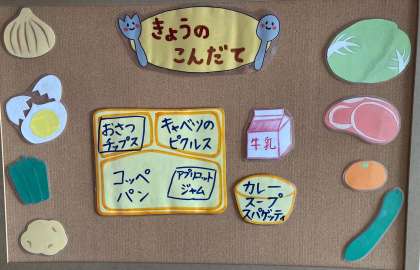 きょうの
こんだて
おさつ
チップス
キャベツの
ピクルス
牛乳
コッペ
パン
アプリコット
ジャム
カレー
スープ
スパゲッティ